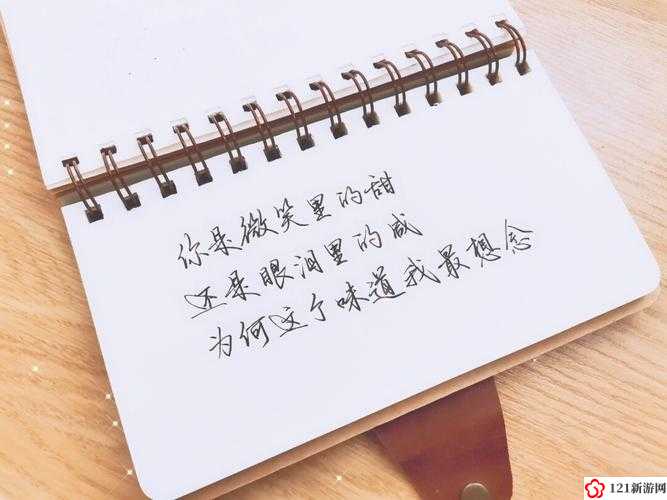 你是微笑里的甜
还是眼泪里的咸
为何这个味道我最想念
121新游网